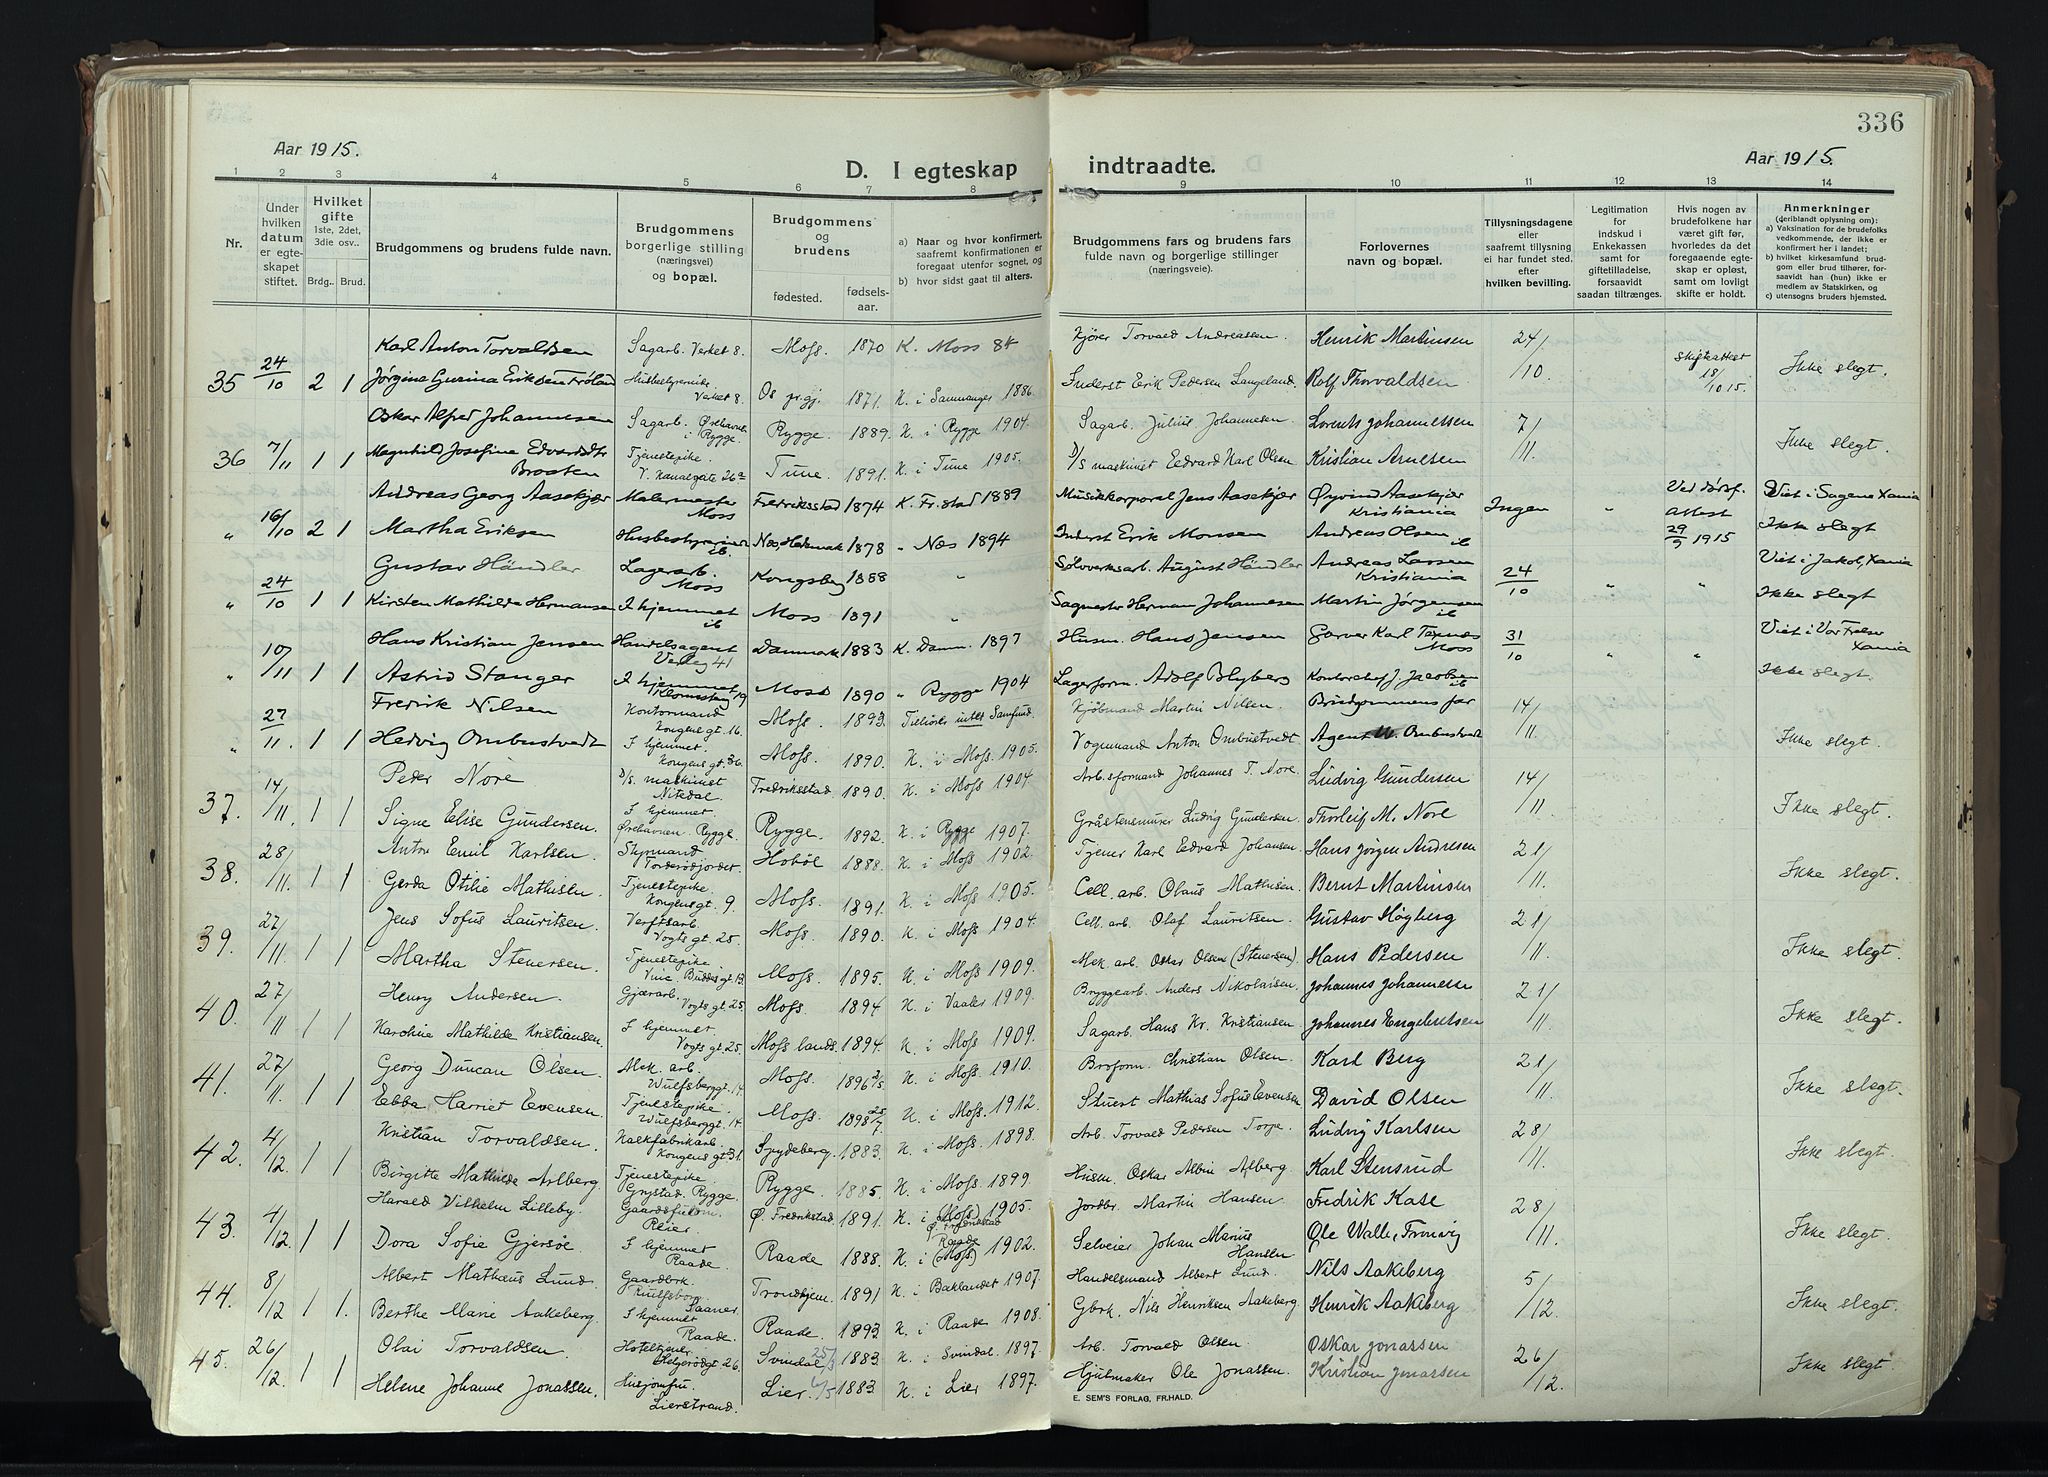 336
Aar 1915.
D. I egteskap indtraadte.
Aar 1915.
1 2 3 4 5 6 7 8 9 10 11 12 13 14
Nr.
Under hvilken datum er egteskapet stiftet.
Hvilket gifte 1ste, 2det, 3die osv..
Brdg.. Brud.
Brudgommens og brudens fulde navn.
Brudgommens borgerlige stilling (næringsvei) og bopæl.
Brudgommens og brudens
fødested. fødselsaar.
a) Naar og hvor konfirmert, saafremt konfirmationen er foregaat utenfor sognet, og
b) hvor sidst gaat til alters.
Brudgommens fars og brudens fars fulde navn og borgerlige stillinger (næringsveie).
Forlovernes navn og bopæl.
Tillysningsdagene eller saafremt tillysning ei har fundet sted, efter hvilken bevilling.
Legitimation for indskud i Enkekassen samt for giftetilladelse, forsaavidt saadan tiltrænges.
Hvis nogen av brudefolkene har været gift før, hvorledes da det foregaaende egteskap er opløst, samt om lovligt skifte er holdt.
Anmerkninger (deriblandt oplysning om):
a) Vaksination for de brudefolks vedkommende, der ikke er konfirmert her i landet;
b) hvilket kirkesamfund brudgom eller brud tilhører, forsaavidt han (hun) ikke er medlem av Statskirken, og
c) utensogns bruders hjemsted.
35 24/10 2 1 Karl Anton Torvaldsen Sagarb. Verket 8. Moss. 1870 K. Moss 84 Kjører Torvald Andreassen Henrik Martinsen 24/10 skifteattest 18/10 15. Ikke slegt.
Jørgine Gurina Eriksen Frøland Verket 8. Os pr.gj. 1871. K. i Samnanger 1886. Inderst Erik Pedersen Langeland. Rolf Thorvaldsen
36 7/11 1 1 Oskar Alfred Johannesen Sagarb. Ørehavnen i Rygge. Rygge. 1889. K. i Rygge 1904. Sagarb. Julius Johannesen Lorentz Johannessen 7/11. Ikke slegt.
Magnhild Josefine Edvardsdtr Braaten Tjenestepike. V. Kanalgate 26a Tune. 1891. K. i Tune 1905. D/s maskinist Edvard Karl Olsen Kristian Arnesen
" 16/10 2 1 Andreas Georg Aasekjær Malermester Moss Fredriksstad 1874 K. Fr.stad 1889 Musikkorporal Jens Aasekjær Øyvind Aasekjær Kristiania Ingen " Ved dødsf. Attest 29/9 1915 Viet i Sagene Xania Ikke slegt
Martha Eriksen Husbestyrerinde ib. Næs, Hedemark 1878 " Næs 1894 Inderst Erik Monsen Andreas Olsen ib
" 24/10 1 1 Gustav Händler Lagerarb. Moss Kongsberg 1888 " Sølvverksarb. August Händler Andreas Larsen Kristiania 24/10 " " Viet i Jakob, Xania Ikke slegt
Kirsten Mathilde Hermansen I hjemmet ib Moss 1891 " Sagmester Herman Johannesen Martin Jørgensen ib
" 10/11 1 1 Hans Kristian Jensen Handelsagent 41 Danmark 1883 K. Danm. 1897 Husm. Hans Jensen Garver Karl Moss 31/10 " " Viet i Vor Frelser Xania Ikke slegt.
Astrid Stanger I hjemmet 19 Moss 1890 " Rygge 1904 Lagerform. Adolf Blyberg Kontorchef J. Jacobsen ib
" 27/11. 1 1 Fredrik Nilsen Kontormand Kongens gt. 16. Moss. 1893. Tilhører intet Samfund. Kjøbmand Martin Nilsen. Brudgommens far 14/11. Ikke slegt.
Hedvig Ombustvedt I hjemmet. Kongens gt. 36. Moss. 1890. K. i Moss 1905. Vognmand Anton Ombustvedt Agent W. Ombustvedt
37. 14/11. 1 1 Peder Nore D/s maskinist Nitedal. Fredriksstad. 1890. K. i Moss 1904. Arb.sformand Johannes T. Nore. Ludvig Gundersen 14/11 Ikke slegt.
Signe Elise Gundersen. I hjemmet. Ørehavnen. Rygge Rygge. 1892. K. i Rygge 1907. Gråstensmurer Ludvig Gundersen. Thorleif M. Nore
38. 28/11. 1 1 Anton Emil Karlsen. Styrmand Hobøl 1888. K. i Moss 1902. Tjener Karl Edvard Johansen. Hans Jørgen Andresen 21/11. Ikke slegt.
Gerda Otilie Mathisen. Tjenestepike. Kongens gt. 9. Moss. 1891. K. i Moss 1905. Cell. arb. Olaus Mathisen. Bernt Martinsen
39. 27/11. 1 1 Jens Sofus Lauritsen. Verftsarb. Vogts gt. 25. Moss. 1890. K. i Moss 1904. Cell. arb. Olaf Lauritsen. Gustav Høgberg 21/11. Ikke slegt.
Martha Stenersen. Tjenestepike gt. 13. Moss. 1895. K. i Moss 1909. Mek. arb. Oskar Olsen (Stenersen). Hans Pedersen
40. 27/11 1 1 Henry Andersen. Gjærarb. Vogts gt. 25. Moss. 1894 K. i Vaaler 1909. Bryggearb. Anders Nikolaisen. Johannes Johannesen 21/11. Ikke slegt.
Karoline Mathilde Kristiansen. I hjemmet Vogts gt. 25. Moss lands. 1894. K. i Moss 1909. Sagarb. Hans Kr. Kristiansen. Johannes Engebretsen
41. 27/11. 1 1 Georg Duncan Olsen. Mek. arb. Wulfsberggt. 14. Moss. 1896 2/5 K. i Moss. 1910. Broform. Christian Olsen. Karl Berg 21/11. Ikke slegt.
Ebba Harriet Evensen. Tjenestepike. Wulfsberggt. 14. Moss. 1898 25/7 K. i Moss. 1912. Stuert Mathias Sofus Evensen David Olsen
42. 4/12. 1 1 Kristian Torvaldsen. Kalkfabrikarb. Kongens gt. 31. Spydeberg. 1883. K. i Moss. 1898. Arb. Torvald Pedersen Torpe. Ludvig Karlsen 28/11. Ikke slegt.
Birgitte Mathilde Ahlberg. Tjenestepike. Grystad. Rygge. Rygge. 1885. K. i Moss. 1899 Husm. Oskar Albin Alberg. Karl Stensrud
43. 4/12. 1 1 Harald Vilhelm Lilleby. Reier. Ø. Fredrikstad. 1891. K. i (Moss) 1905. Ø. Fredrikstad Jordbr. Martin Hansen. Fredrik Kase 28/11. Ikke slegt.
Dora Sofie Gjersøe. I hjemmet Raade. Raade 1888. K. i (Moss.) Raade 1902. Selveier Johan Marius Hansen Ole Walle, Tronvig
44. 8/12 1 1. Albert Mathæus Lund. Gaardbrk. Saaner. Trondhjem. 1891 K. i Baklandet 1907. Handelsmand Albert Lund. Nils Aakeberg 5/12. Ikke slegt.
Berthe Marie Aakeberg. I hjemmet Raade. Raade. 1893. K. i Raade 1908. Gbrk. Nils Henriksen Aakeberg. Henrik Aakeberg
45. 26/12. 1 1 Olai Torvaldsen. Hoteltjener Helgerødgt 26. Svindal 25/3 1883. K. i Svindal. 1897. Arb. Torvald Olsen. Oskar Jonassen 26/12. Ikke slegt.
Helene Johanne Jonassen. Husjomfru. Lierstrand. Lier. 1883 K. i Lier 1897. Hjulmaker Ole Jonassen. Kristian Jonassen
E. SEM'S FORLAG, FR.HALD.